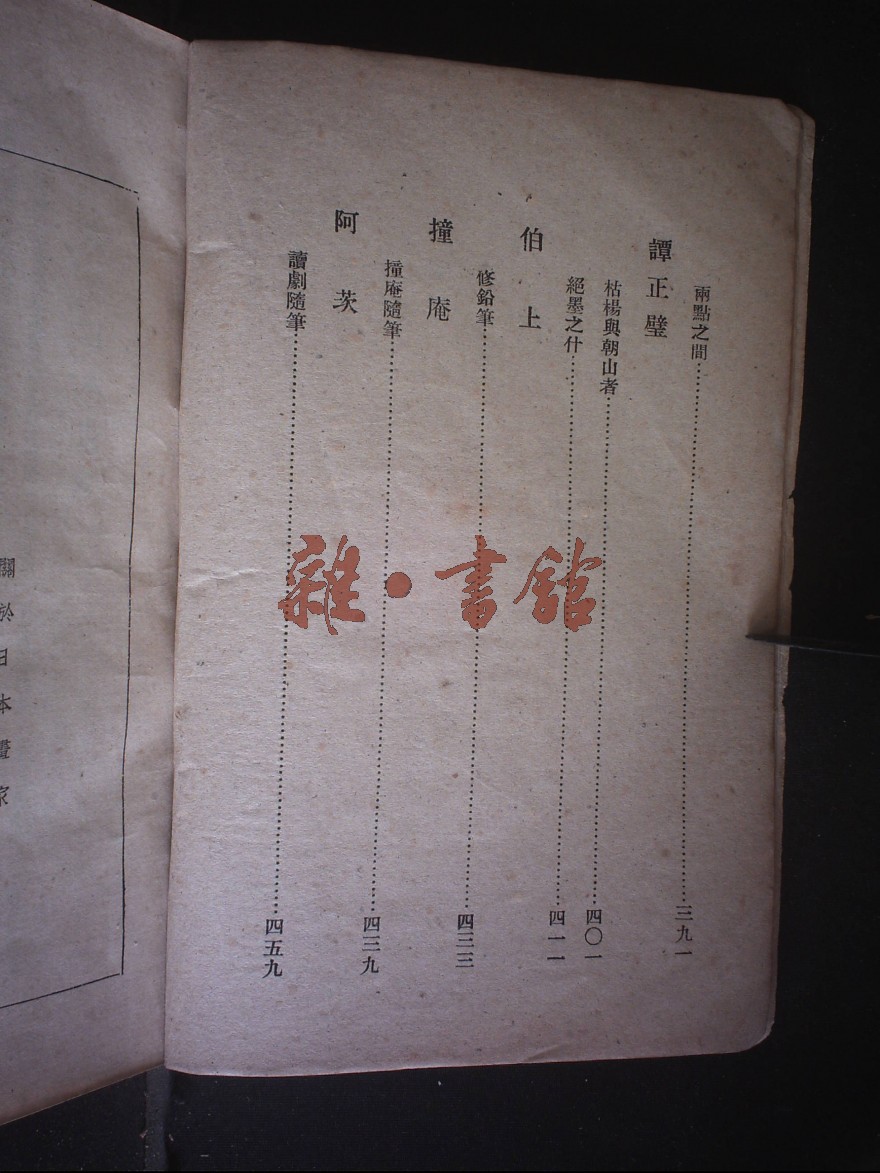 兩點之間……三九一
譚正璧
枯楊與朝山者……四〇一
絕墨之什……四一一
伯上
修鉛筆……四三三
撞庵
撞庵隨筆……四三九
阿茨
讀劇隨筆……四五九
雜·書館
關於日本畫家